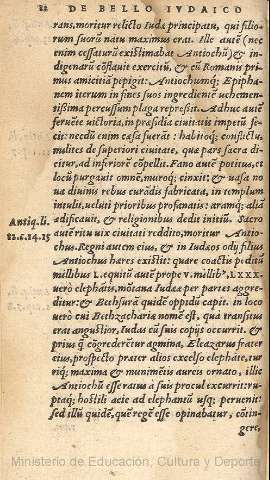 82 DE BELLO IVDAICO
rans, moritur relicto Iudæ principatu, qui filio-
rum suorũ natu maximus erat. Ille autẽ (nec
enim cessaturũ existimabat Antiochũ) & in-
digenarũ cõflauit exercitũ, & cũ Romanis pri-
mus amicitiã pepigit. Antiochumq; Epipha-
nem iterum in fines suos ingredientẽ uehemen-
tissima percussum plaga repressit. Adhuc autẽ
feruẽte uictoria, in præsidia ciuitatis impetũ fe-
cit: necdũ enim cæsa fuerat: habitoq; conflictu,
milites de superiori ciuitate, quæ pars sacra di-
citur, ad inferiorẽ cõpellit. Fano autẽ potitus, et
locũ purgauit omnẽ, muroq; cinxit: & uasa no
ua diuinis rebus curãdis fabricata, in templum
intulit, ueluti prioribus profanatis: aramq; aliã
ædificauit, & religionibus dedit initiũ. Sacro
Antiq. li.
autẽ ritu uix ciuitati reddito, moritur Antio-
12. c. 14. 15
chus. Regni autem eius, & in Iudæos odij filius
Antiochus hæres existit: quare coactis peditũ
millibus L. equitũ autẽ prope v. millib⁹, LXXX.
uerò elephãtis, mõtana Iudææ per partes aggre-
ditur: & Bethsurã quidẽ oppidũ capit. in loco
uerò cui Bethzacharia nomẽ est, quà transitus
erat angustior, Iudas cũ suis copijs occurrit. &
prius q̃ cõgrederẽtur agmina, Eleazarus frater
eius, prospecto præter alios excelso elephãte, tur
riq; maxima & munimẽtis aureis ornato, illic
Antiochũ esse ratus à suis procul excurrit: ru-
ptaq; hostiũ acie ad elephantũ usq; peruenit:
sed illũ quidẽ, quẽ regẽ esse opinabatur, cõtin-
gere,
Ministerio de Educación, Cultura y Deporte